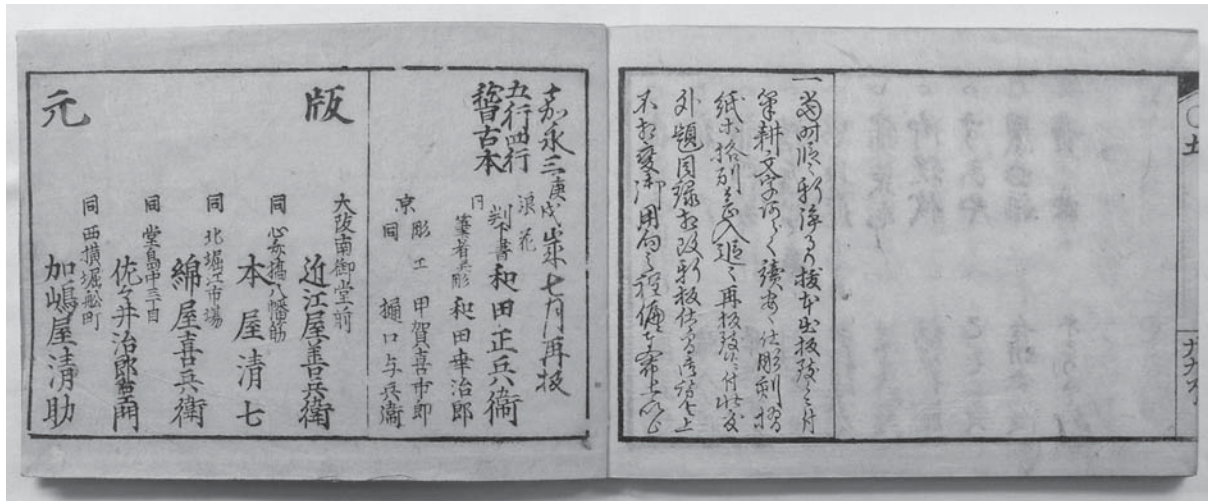 一當時順々新浄るり抜本出板致候ニ付
筆耕文字 讀安く仕彫刻摺
紙等格別ニ念入追々再板致候ニ付此度
外題目録相改新板仕候間 上
不相變御用向之程偏ニ奉希上候以上
嘉永三庚戌歳七月再板
五行四行
稽古本
浪花 判下書 和田正兵衛
同 筆者兼彫 和田幸治郎
京 彫工 甲賀喜市郎
同 樋口与兵衛
版
大阪南御堂前
近江屋善兵衛
同 心斎橋八幡筋
本屋清七
同 北堀江市場
綿屋喜兵衛
同 堂島中三丁目
佐々井治郎右衛門
同 西横堀船町
加嶋屋清助
元